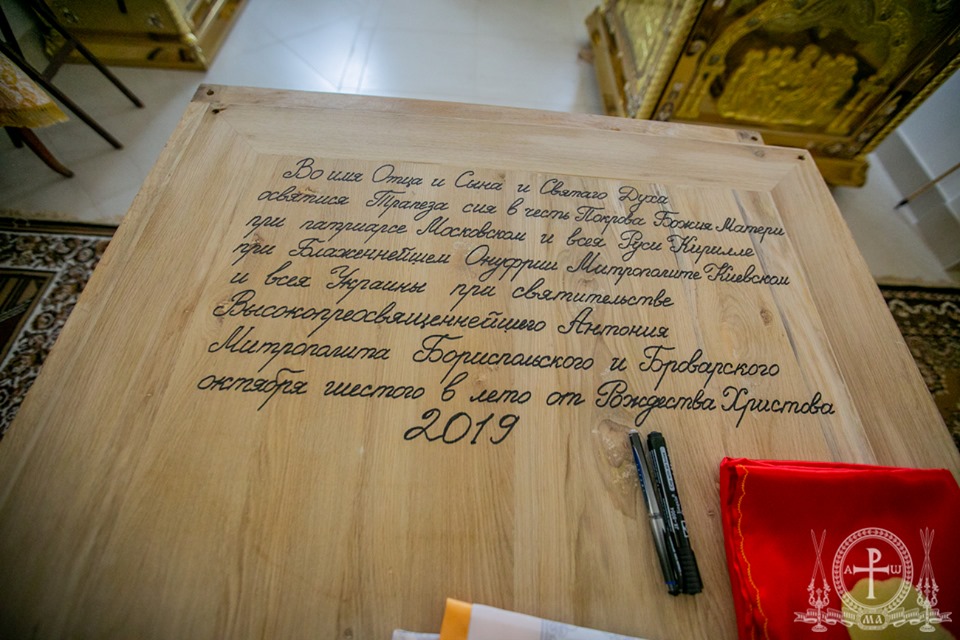 Во имя Отца и Сына и Святаго Духа
освятися Трапеза сия в честь Покрова Божия Матери
при патриарсе Московском и всея Руси Кирилле
при Блаженнейшем Онуфрии Митрополите Киевском
и всея Украины при святительстве
Высокопреосвященнейшего Антония
Митрополита Бориспольского и Броварского
октября шестого в лето от Рождества Христова
2019
А Р Ѡ
МА